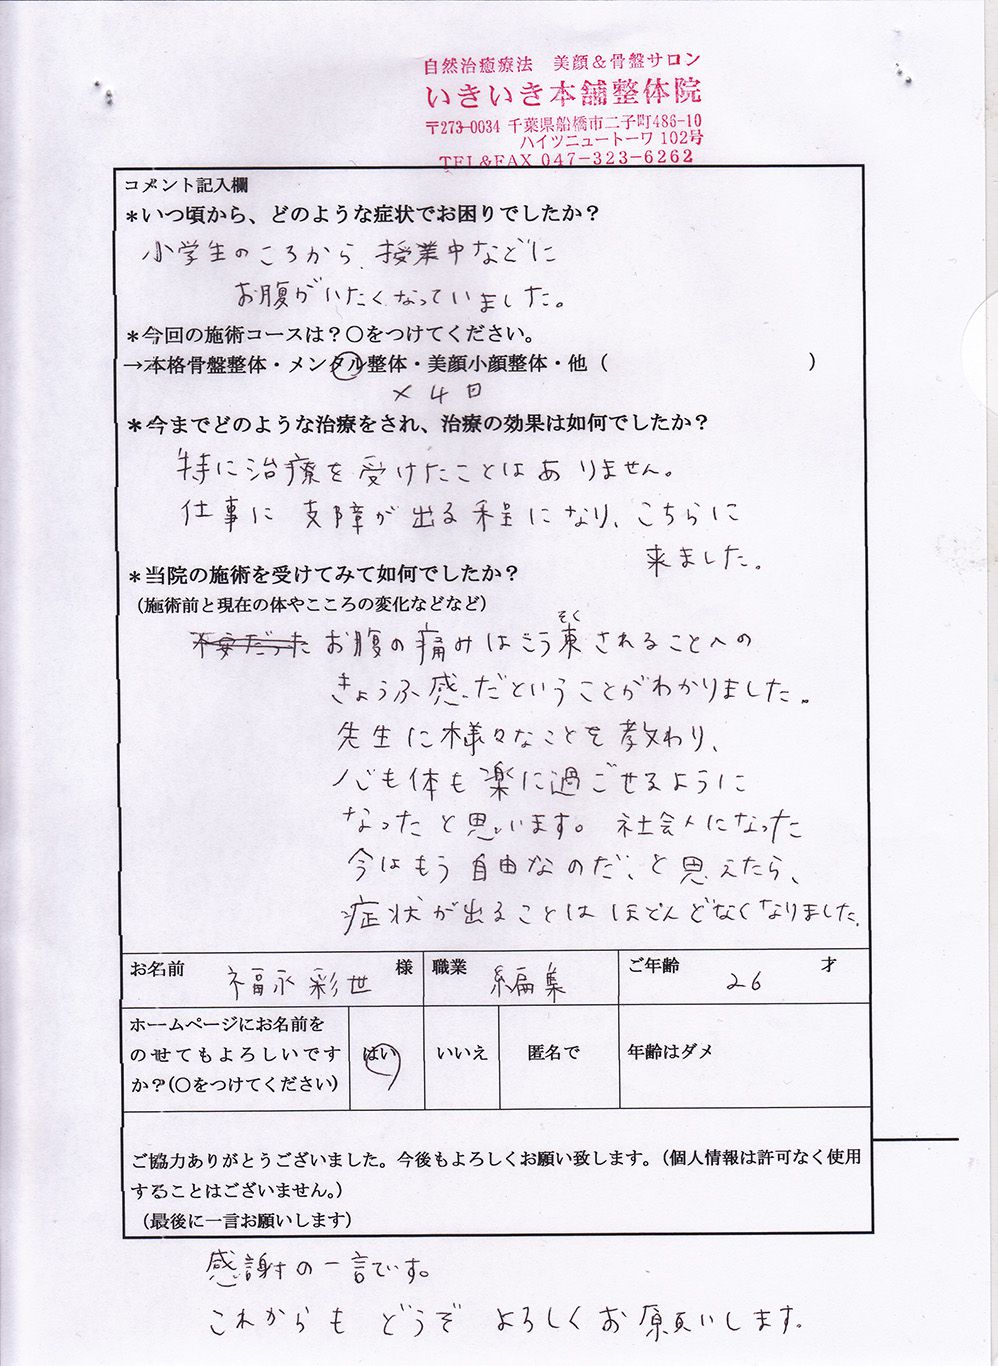 自然治癒療法　美顔＆骨盤サロン
いきいき本舗整体院
〒273-0034 千葉県船橋市二子町486-10
ハイツニュートーワ 102号
TEL&FAX 047-323-6262
コメント記入欄
＊いつ頃から、どのような症状でお困りでしたか？
小学生のころから、授業中などに
お腹がいたくなっていました。
＊今回の施術コースは？〇をつけてください。
→本格骨盤整体・メンタル整体・美顔小顔整体・他（　　　　　　　　　　）
×4回
＊今までどのような治療をされ、治療の効果は如何でしたか？
特に治療を受けたことはありません。
仕事に支障が出る程になり、こちらに
来ました。
＊当院の施術を受けてみて如何でしたか？
（施術前と現在の体やこころの変化などなど）
そく
不安だった お腹の痛みはこう束されることへの
きょうふ感だということがわかりました。
先生に様々なことを教わり、
心も体も楽に過ごせるように
なったと思います。社会人になった
今はもう自由なのだ、と思えたら、
症状が出ることはほとんどなくなりました。
お名前 福永彩世 様 職業 編集 ご年齢 26 才
ホームページにお名前を
のせてもよろしいです はい いいえ 匿名で 年齢はダメ
か？（〇をつけてください）
ご協力ありがとうございました。今後もよろしくお願い致します。（個人情報は許可なく使用
することはございません。）
（最後に一言お願いします）
感謝の一言です。
これからもどうぞよろしくお願いします。